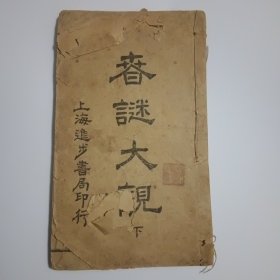 春謎大觀
下
上海進步書局印行